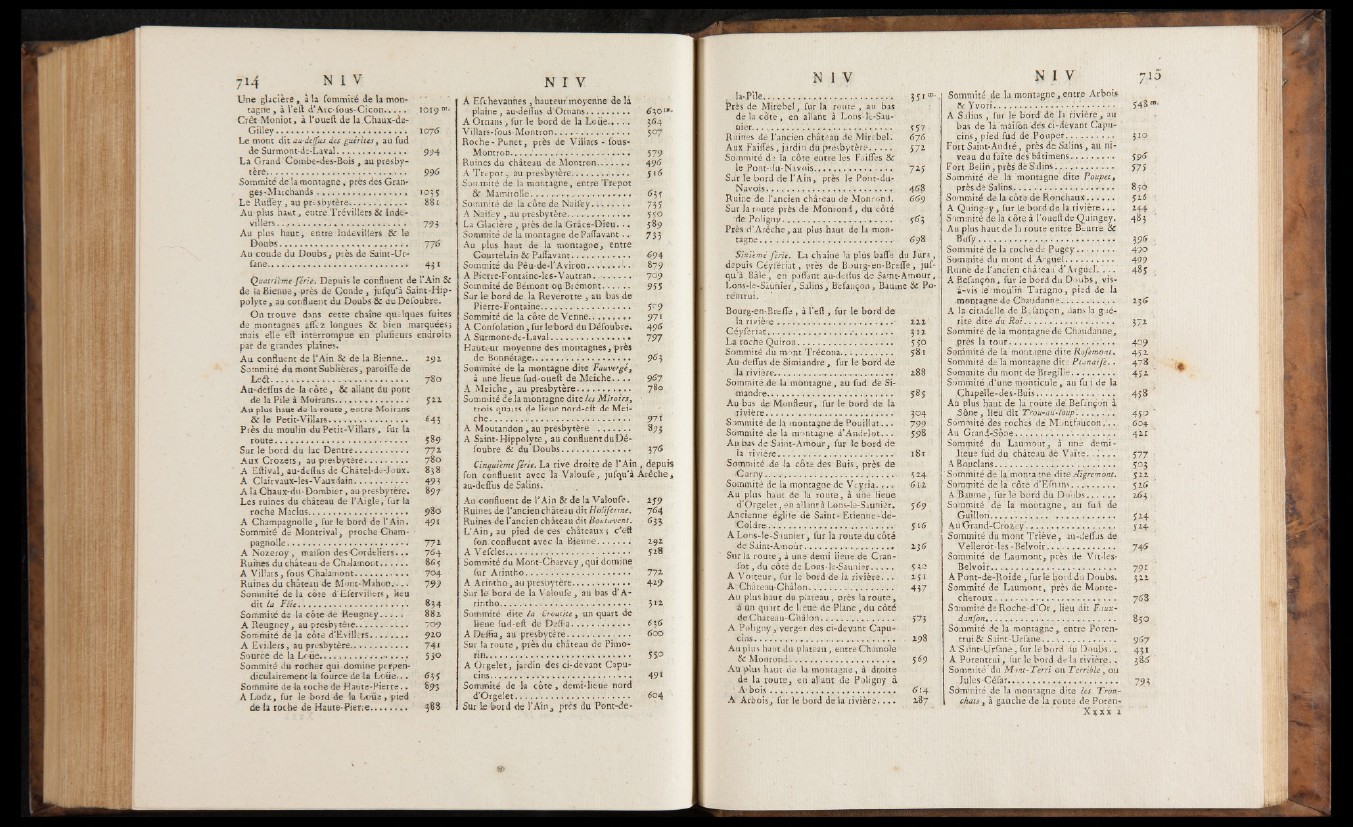 714 N I V
Une glacière, à la sommité de la mon-
tagne, à l'est d'Arc-sous-Cicon..... 1019 m.
Crêt-Moniot, à l'ouest de la Chaux-de-
Gilley......................... 1076
Le mont dit au-dessus des guérites, au sud
de Surmont-de-Laval.............. 994
La Grand'Combe-des-Bois, au presby-
tère.......................... 996
Sommité de la montagne, près des Gran-
ges-Marchands................. 1035
Le Russey, au presbytère............ 881
Au plus haut, entre Trévillers & Inde-
villers......................... 793
Au plus haut, entre Indevillers & le
Doubs........................ 776
Au coude du Doubs, près de Saint-Ur-
sane.......................... 431
Quatrième série. Depuis le confluent de l'Ain &
de la Bienne, près de Conde, jusqu'à Saint-Hip-
polyte, au confluent du Doubs & du Désoubre.
On trouve dans cette chaîne quelques suites
de montagnes assez longues & bien marquées;
mais elle est interrompue en plusieurs endroits
par de grandes plaines.
Au confluent de l'Ain & de la Bienne.. 292
Sommité du mont Sublières, paroisse de
Lect.......................... 780
Au-dessus de la côte, & allant du pont
de la Pile à Moirans.............. 522
Au plus haut de la route, entre Moirans
& le Petit-Villars................ 643
Près du moulin du Petit-Villars, sur la
route......................... 589
Sur le bord du lac Dentre........... 772
Aux Crozets, au presbytère......... 780
A Estival, au-dessus de Châtel-de-Joux. 838
A Clairvaux-les-Vauxdain........... 493
A la Chaux-du-Dombier, au presbytère. 897
Les ruines du château de l'Aigle, sur la
roche Maclus................... 980
A Champagnolle, sur le bord de l'Ain. 491
Sommité de Montrival, proche Cham-
pagnolle....................... 772
A Nozeroy, maison des Cordeliers... 764
Ruines du château de Chalamont...... 865
A Villars, sous Chalamont.......... 704
Ruines du château de Mont-Mahon... 799
Sommité de la côte d'Eservillers, lieu
dit la Fée...................... 834
Sommité de la côte de Reugney...... 882
A Reugney, au presbytère.......... 709
Sommité de la côte d'Evillers........ 920
A Evillers, au presbytère........... 741
Source de la Loüe................. 530
Sommité du rocher qui domine perpen-
diculairement la source de la Loüe... 635
Sommité de la roche de Haute-Pierre.. 893
A Lodz, sur le bord de la Loüe, pied
de la roche de Haute-Pierre........ 388
N I V
A Eschevannes, hauteur moyenne de la
plaine, au-dessus d'Ornans......... 620 m.
A Ornans, sur le bord de la Loüe..... 364
Villars-sous-Montron............... 507
Roche-Punet, près de Villars-sous-
Montron....................... 579
Ruines du château de Montron....... 496
A Trepot, au presbytère............ 516
Sommité de la montagne, entre Trepot
& Mamirolle................... 635
Sommité de la côte de Naisey........ 735
A Naisey, au presbytère............ 550
La Glacière, près de la Grâce-Dieu... 589
Sommité de la montagne de Passavant.. 733
Au plus haut de la montagne, entre
Courtetain & Passavant............ 694
Sommité du Péu-de-l'Aviron......... 879
A Pierre-Fontaine-les-Vautran....... 709
Sommité de Bémont ou Biémont...... 955
Sur le bord de la Reverotte, au bas de
Pierre-Fontaine................. 509
Sommité de la côte de Venne........ 971
A Consolation, sur le bord du Désoubre. 496
A Surmont-de-Laval............... 797
Hauteur moyenne des montagnes, près
de Bonnétage................... 963
Sommité de la montagne dite Fauvergé,
à une lieue sud-ouest de Meiche.... 967
A Meiche, au presbytère........... 780
Sommité de la montagne dite les Miroirs,
trois quarts de lieue nord-est de Mei-
che........................... 971
A Montandon, au presbytère ....... 893
A Saint-Hippolyte, au confluent du Dé-
soubre & du Doubs.............. 376
Cinquième série. La rive droite de l'Ain, depuis
son confluent avec la Valouse, jusqu'à Arèche,
au-dessus de Salins.
Au confluent de l'Ain & de la Valouse. 259
Ruines de l'ancien château dit Holiferme. 764
Ruines de l'ancien château dit Boutavent. 633
L'Ain, au pied de ces châteaux; c'est
son confluent avec la Bienne....... 292
A Vescles........................ 528
Sommité du Mont-Charvey, qui domine
sur Arintho.................... 772
A Arintho, au presbytère........... 429
Sur le bord de la Valouse, au bas d'A-
rintho........................ 312
Sommité dite la Croutite, un quart de
lieue sud-est de Dessia............ 636
A Dessia, au presbytère............ 600
Sur la route, près du château de Pimo-
rin........................... 550
A Orgelet, jardin des ci-devant Capu-
cins.......................... 491
Sommité de la côte, demi-lieue nord
d'Orgelet...................... 604
Sur le bord de l'Ain, près du Pont-de-
N I V
la-Pile......................... 351 m.
Près de Mirebel, sur la route, au bas
de la côte, en allant à Lons-le-Sau-
nier.......................... 557
Ruines de l'ancien château de Mirebel. 676
Aux Faisses, jardin du presbytère..... 572
Sommité de la côte entre les Faisses &
le Pont-du-Navois............... 725
Sur le bord de l'Ain, près le Pont-du-
Navois........................ 468
Ruine de l'ancien château de Monrond. 669
Sur la route près de Monrond, du côté
de Poligny..................... 563
Près d'Arêche, au plus haut de la mon-
tagne......................... 698
Sixième série. La chaîne la plus basse du Jura,
depuis Céyseriat, près de Bourg-en-Bresse, jus-
qu'à Bâle, en passant au-dessus de Saint-Amour,
Lons-le-Saunier, Salins, Besançon, Baume & Po-
rentrui.
Bourg-en-Bresse, à l'est, sur le bord de
la rivière...................... 222
Céyseriat........................ 312
La roche Quiron.................. 550
Sommité du mont Trécona.......... 581
Au-dessus de Simiandre, sur le bord de
la rivière...................... 288
Sommité de la montagne, au sud de Si-
mandre....................... 585
Au bas de Monsleur, sur le bord de la
rivière........................ 304
Sommité de la montagne de Pouillat... 799
Sommité de la montagne d'Andelot... 598
Au bas de Saint-Amour, sur le bord de
la rivière...................... 181
Sommité de la côte des Buis, près de
Carny........................ 524
Sommité de la montagne de Veyria.... 612
Au plus haut de la route, à une lieue
d'Orgelet, en allant à Lons-le-Saunier. 569
Ancienne église de Saint-Etienne-de-
Coldre........................ 516
A Lons-le-Saunier, sur la route du côté
de Saint-Amour................. 236
Sur la route, à une demi lieue de Cran-
sot, du côté de Lons-le-Saunier..... 520
A Voiteur, sur le bord de la rivière... 251
A Château-Châlon................. 437
Au plus haut du plateau, près la route,
à un quart de lieue de Plane, du côté
de Château-Châlon............... 573
A Poligny, verger des ci-devant Capu-
cins.......................... 298
Au plus haut du plateau, entre Chamole
& Monrond.................... 569
Au plus haut de la montagne, à droite
de la route, en allant de Poligny à
Arbois........................ 614
A Arbois, sur le bord de la rivière.... 287
N I V 715
Sommité de la montagne, entre Arbois
& Yvori....................... 548 m.
A Salins, sur le bord de la rivière, au
bas de la maison des ci-devant Capu-
cins, pied sud de Poupet.......... 310
Fort Saint-André, près de Salins, au ni-
veau du faîte des bâtimens......... 596
Fort Belin, près de Salins............ 575
Sommité de la montagne dite Poupet,
près de Salins................... 850
Sommité de la côte de Ronchaux...... 526
A Quingey, sur le bord de la rivière... 244
Sommité de la côte à l'ouest de Quingey. 483
Au plus haut de la route entre Beurre &
Bussy......................... 396
Sommité de la roche de Pugey........ 490
Sommité du mont d'Arguel.......... 499
Ruine de l'ancien château d'Arguel.... 485
A Besançon, sur le bord du Doubs, vis-
à-vis le moulin Taragno, pied de la
montagne de Chaudanne........... 236
A la citadelle de Besançon, dans la gué-
rite dite du Roi................. 372
Sommité de la montagne de Chaudanne,
près la tour.................... 409
Sommité de la montagne dite Rosemont. 452
Sommité de la montagne dite Planoise.. 478
Sommité du mont de Bregille......... 452
Sommité d'une monticule, au sud de la
Chapelle-des-Buis................ 458
Au plus haut de la route de Besançon à
Sône, lieu dit Trou-au-loup........ 450
Sommité des roches de Montfaucon... 604
Au Grand-Sône................... 421
Sommité du Laumont, à une demi-
lieue sud du château de Vaite...... 577
A Bouclans...................... 503
Sommité de la montagne dite Aigremont. 522
Sommité de la côte d'Esnans......... 526
A Baume, sur le bord du Doubs...... 263
Sommité de la montagne, au sud de
Guillon....................... 524
Au Grand-Crozey................. 524
Sommité du mont Triève, au-dessus de
Vellerot-les-Belvoir.............. 746
Sommité de Laumont, près de Vit-les-
Belvoir........................ 791
A Pont-de-Roide, sur le bord du Doubs. 322
Sommité de Laumont, près de Monte-
cheroux....................... 768
Sommité de Roche-d'Or, lieu dit Faux-
danson........................ 850
Sommité de la montagne, entre Poren-
trui & Saint-Ursane.............. 967
A Saint-Ursane, sur le bord du Doubs.. 431
A Porentrui, sur le bord de la rivière.. 386
Sommité du Mont-Terri ou Terrible, ou
Jules-César.................... 793
Sommité de la montagne dite les Tron-
chats, à gauche de la route de Poren-
Xxxx 2